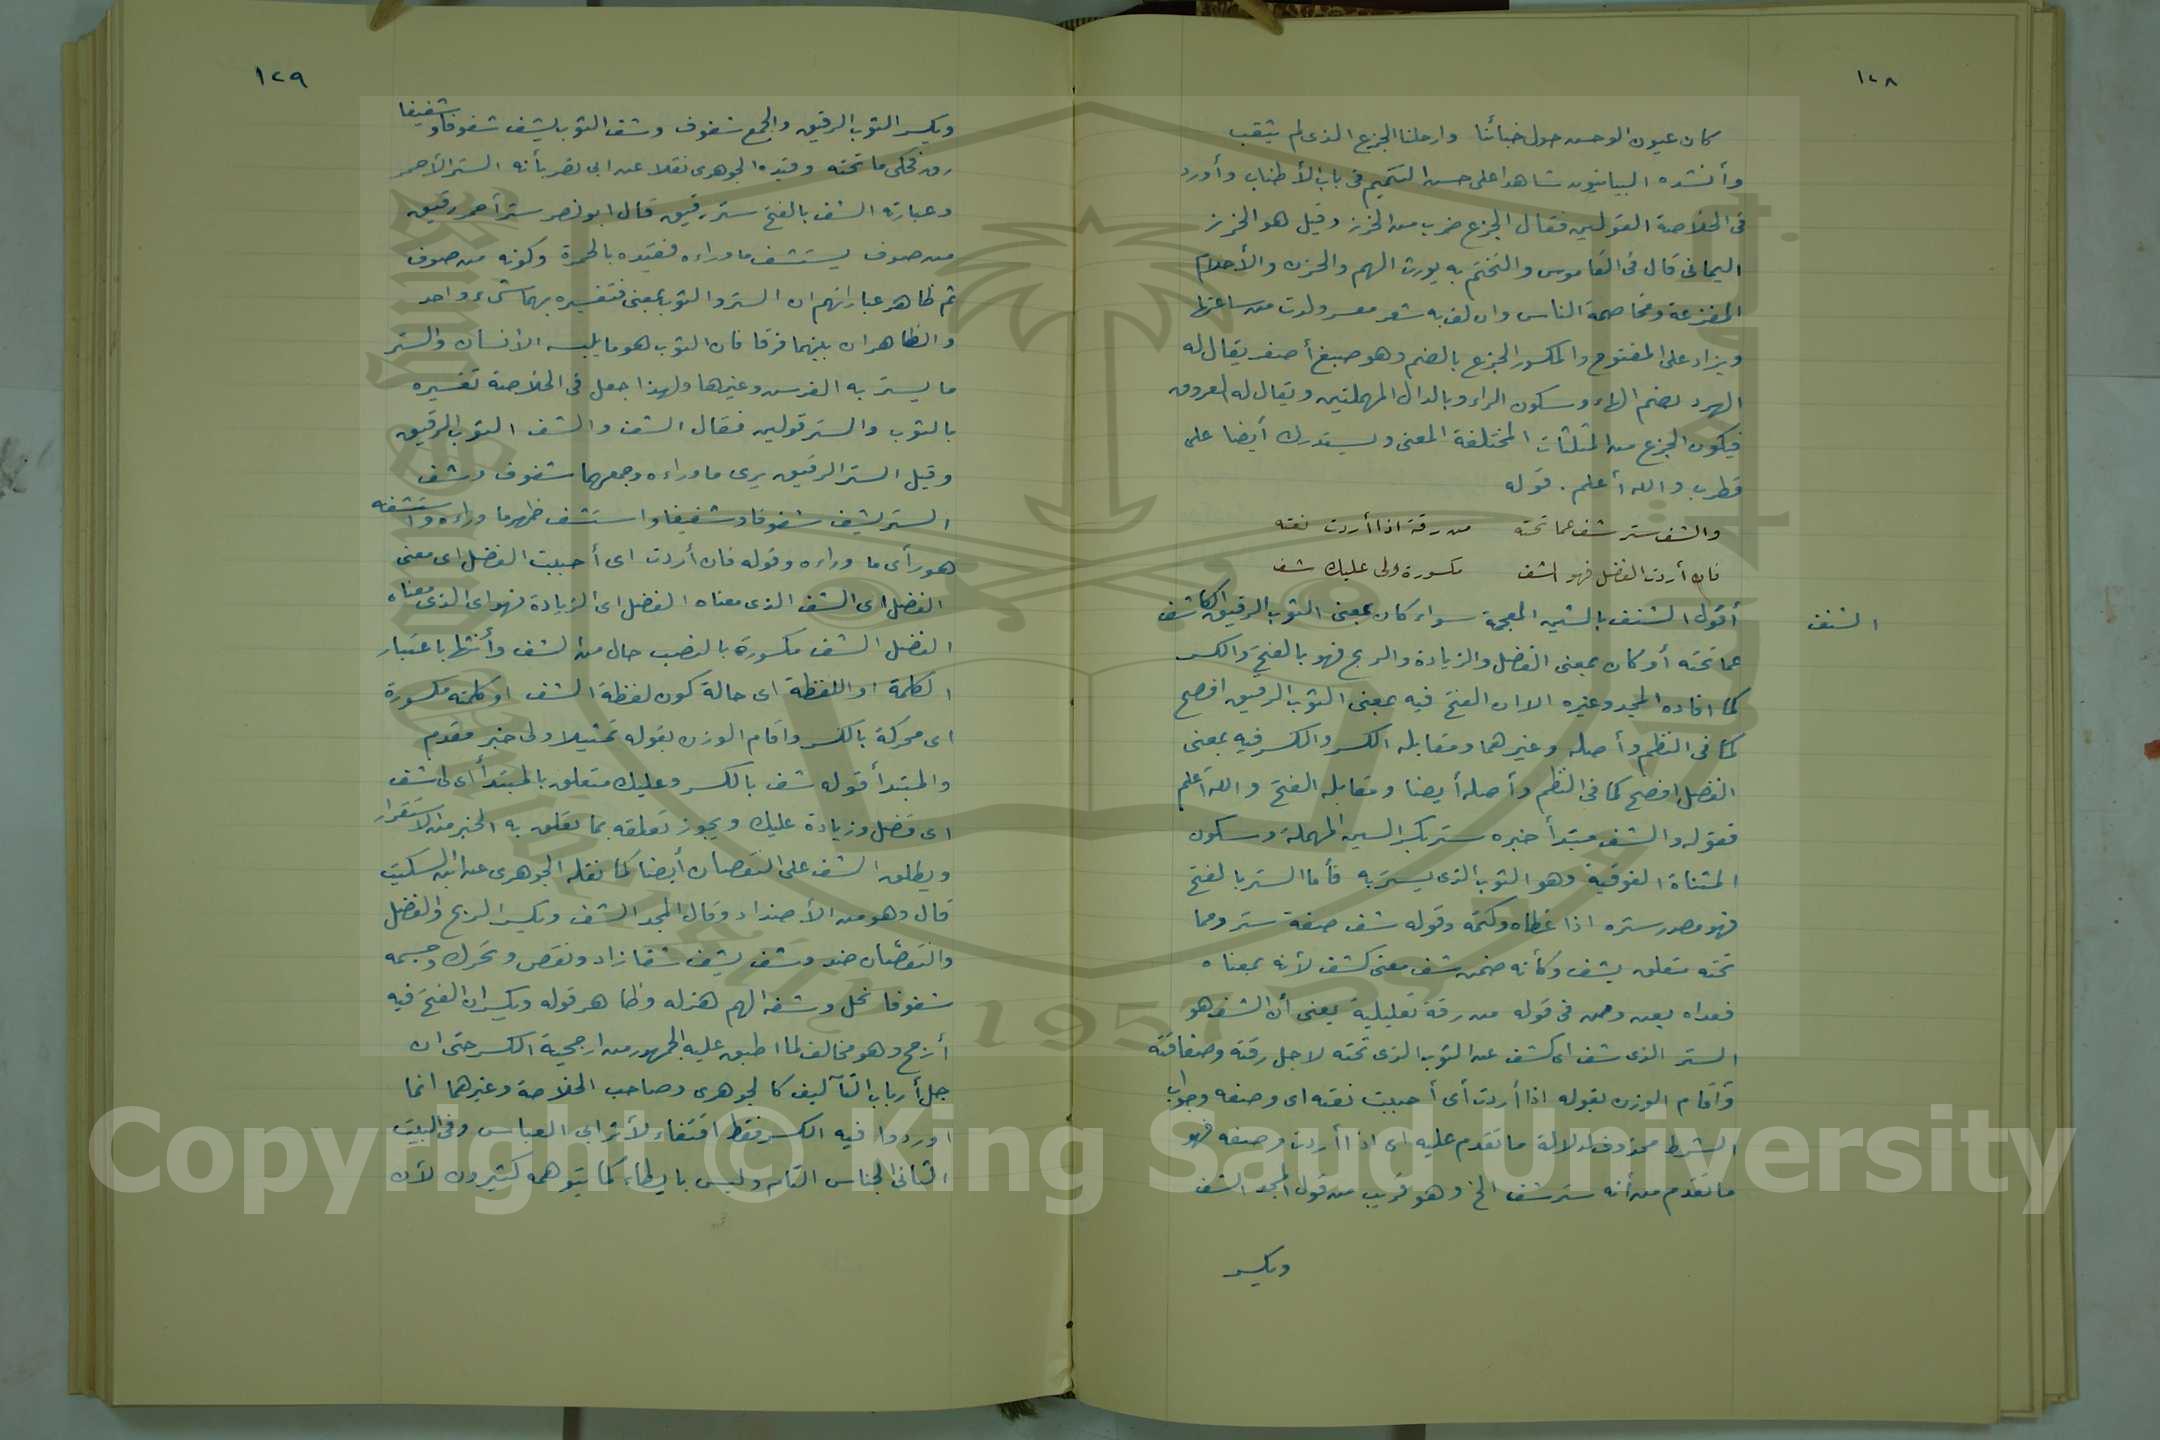 ١٢٨
كان عيون الوحش حول خبائنا وارحلنا الجزع الذي لم يثقب
وأنشده البيانيون شاهدا على حسن التتميم في باب الأطناب وأورد
في الخلاصة القولين فقال الجزع ضرب من الخرز وقيل هو الخرز
اليماني قال في القاموس والتختم به يورث الهم والحزن والأحلام
المفزعة ومخاصمة الناس وان لف به شعر معسر ولدت من ساعتها
ويزاد على المفتوح والمكسور الجزع بالضم وهو صبغ أصفر يقال له
الهرد بضم الهاء وسكون الراء وبالدال المهملتين ويقال له العروق
فيكون الجزع من المثلثات المختلفة المعنى ويستدرك أيضا على
قطرب والله أعلم . قوله
والشف ستر شف عما تحته من رقة اذا أردت نعته
فان أردت الفضل فهو الشف مكسورة ولى عليك شف
الشف
أقول الشف بالشين المعجمة سواء كان بمعنى الثوب الرقيق الكاشف
عما تحته أو كان بمعنى الفضل والزيادة والربح فهو بالفتح والكسر
كما افاده المجد وغيره الا ان الفتح فيه بمعنى الثوب الرقيق افصح
كما في النظم وأصله وغيرهما ومقابله الكسر والكسر فيه بمعنى
الفضل افصح كما في النظم وأصله أيضا ومقابله الفتح والله أعلم
فقوله والشف مبتدأ خبره ستر بكسر السين المهملة وسكون
المثناة الفوقية وهو الثوب الذي يستر به فأما الستر بالفتح
فهو مصدر ستره اذا غطاه وكتمه وقوله شف صفة ستر ومما
تحته متعلق بشف وكأنه ضمن شف معنى كشف لأنه بمعناه
فعداه بعن ومن في قوله من رقة تعليلية يعنى أن الشف هو
الستر الذي شف اى كشف عن الثوب الذي تحته لاجل رقته وصفاقته
وأقام الوزن بقوله اذا أردت أى أحببت نعته اى وصفه وجواب
الشرط محذوف لدلالة ما تقدم عليه اى اذا أردت وصفه فهو
ما تقدم من أنه ستر شف الخ وهو قريب من قول المجد الشف
ويكسر
١٢٩
ويكسر الثوب الرقيق والجمع شفوف وشف الثوب يشف شفوفا وشفيفا
رق فحكى ما تحته وقيده الجوهرى نقلا عن ابى نصر بأنه الستر الأحمر
وعبارته الشف بالفتح ستر رقيق قال ابو نصر ستر أحمر رقيق
من صوف يستشف ما وراءه فقيده بالحمرة وكونه من صوف
ثم ظاهر عباراتهم ان الستر والثوب بمعنى فتفسيره بهما شىء واحد
والظاهر ان بينهما فرقا فان الثوب هو ما يلبسه الانسان والستر
ما يستر به الفرس وغيرها ولهذا جعل في الخلاصة تفسيره
بالثوب والستر قولين فقال الشف والشف الثوب الرقيق
وقيل الستر الرقيق يرى ما وراءه وجمعهما شفوف وشف
الستر يشف شفوفا وشفيفا واستشف ظهر ما وراءه واستشفه
هو رأى ما وراءه وقوله فان أردت اى أحببت الفضل اى معنى
الفضل اى الشف الذى معناه الفضل اى الزيادة فهو اى الذى معناه
الفضل الشف مكسورة بالنصب حال من الشف وأنثها باعتبار
الكلمة او اللفظة اى حالة كون لفظة الشف او كلمته مكسورة
اى محركة بالكسر واقام الوزن بقوله تمثيلا ولى خبر مقدم
والمبتدأ قوله شف بالكسر وعليك متعلق بالمبتدأ اى لى شف
اى فضل وزيادة عليك ويجوز تعلقه بما تعلق به الخبر من الاستقرار
ويطلق الشف على النقصان أيضا كما نقله الجوهرى عن ابن السكيت
قال وهو من الأضداد وقال المجد الشف ويكسر الربح والفضل
والنقصان ضد وشف يشف شفا زاد ونقص وتحرك وجسمه
شفوفا نحل وشفه الهم هزله وظاهر قوله ويكسر ان الفتح فيه
أرجح وهو مخالف لما اطبق عليه الجمهور من ارجحية الكسر حتى ان
جل أرباب التآليف كالجوهرى وصاحب الخلاصة وغيرهما انما
اوردوا فيه الكسر فقط اقتفاء لأثر ابى العباس وفى البيت
الثانى الجناس التام وليس بايطاء كما يتوهمه كثيرون لأن
Copyright © King Saud University
1957